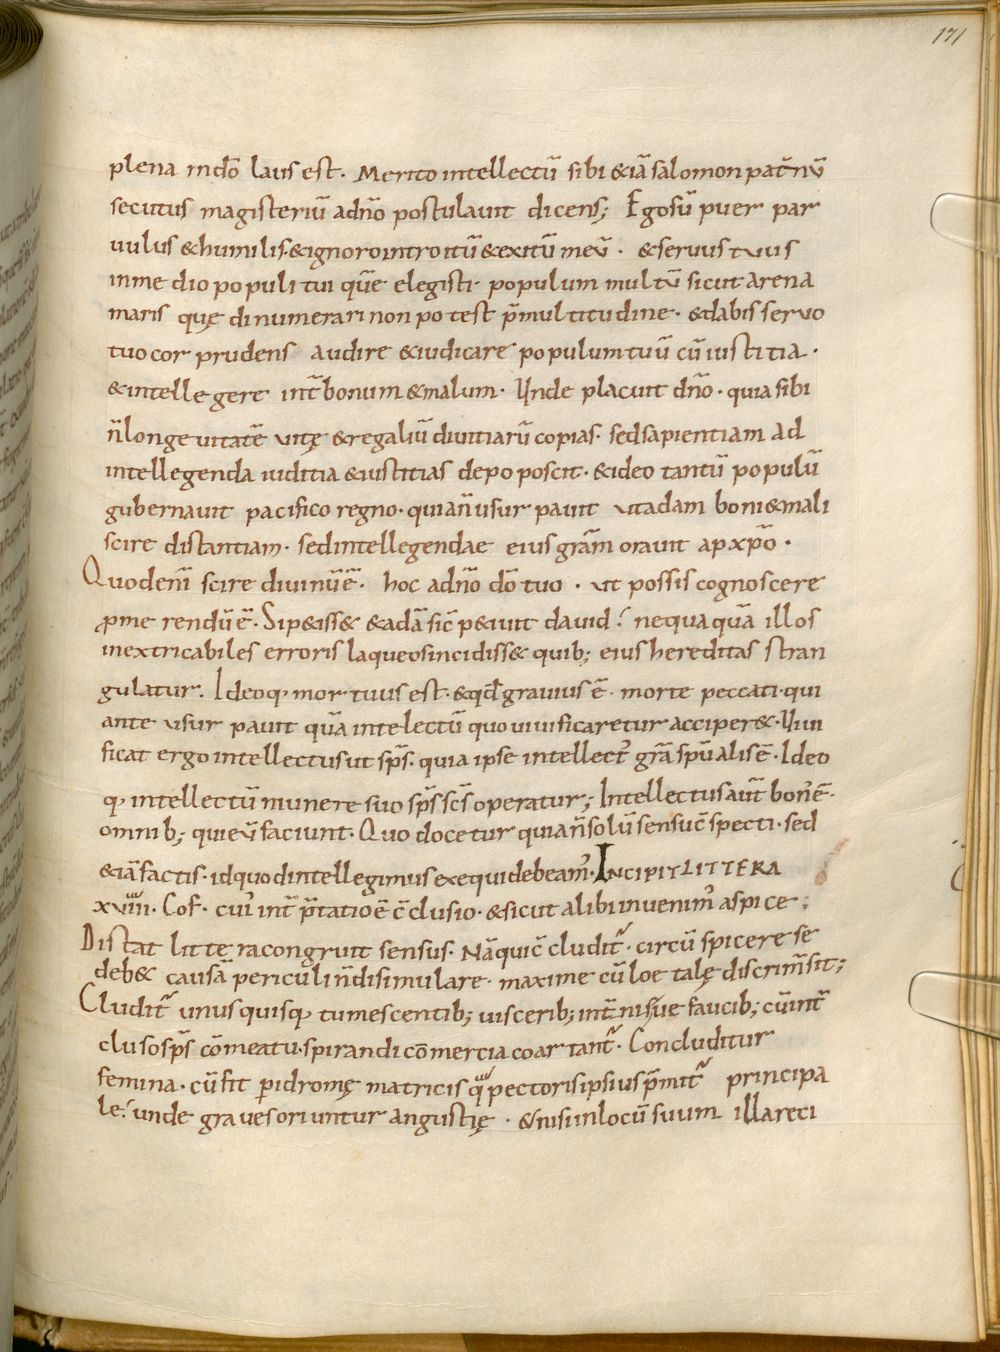 171
plena indō laus est. Merito intellectū sibi &iā salomon pat̄nū
secutus magisteriū adn̄o postulauit dicens; Ego sū puer par
uulus & humilis. & ignoro introitū & exitū meū. & seruus tuus
in medio populi tui quē elegisti populum multū sicut arena
maris quę dinumerari non potest p̄ multitudine. & dabis seruo
tuo cor prudens audire & iudicare populum tuū cū iustitia.
& intellegere int̄ bonum & malum. Unde placuit dn̄o. quia sibi
n̄ longeuitatē uitę & regaliū diuitiarū copias. sed sapientiam ad
intellegenda iuditia & iustitias depoposcit. & ideo tantū populū
gubernauit pacifico regno. quia n̄ usurpauit ut adam boni & mali
scire distantiam. sed intellegendae eius gr̄am orauit ap xp̄o.
Quod eni᷑ scire diuinū ē. hoc adn̄o dō tuo. ut possis cognoscere
ꝓmerendū ē. Si p&iss& & adā sic̄ p&iuit dauid? nequaquā illos
inextricabiles erroris laqueos incidiss& quib; eius hereditas stran
gulatur. Ideoq; mortuus est. & qd̄ grauius ē. morte peccati. qui
ante usurpauit quā intelectū quo uiuificaretur acciper&. Uiui
ficat ergo intellectus ut sp̄s. quia ipse intellect᷒ gr̄a sp̄ualis ē. Ideo
q; intellectū munere suo sp̄s sc̄s operatur; Intellectus aut̄ bon᷒ ē.
omnib; qui eū faciunt. Quo docetur quia n̄ solū sensuc̄specti. sed
&iā factis. id quod intellegimus exequi debeam᷒. INCIPIT LITTERA
xviiii. Cof. cui᷒ int̄p̄tatio ē c̄clusio. & sicut alibi inuenim᷒ aspice;
Distat littęra congruit sensus. Nā qui c̄cludit᷑. circūspicere se
deb& causā periculi n̄ disimulare. maxime cū loe talę discrim̄ sit;
Cludit᷑ unusquisq; tumescentib; uiscerib; int̄nisue faucib; cū int̄
cluso sp̄s cōmeatu. spirandi cōmercia coartant᷑. Concluditur
femina. cū fit ꝑidromę matricis q̄ pectoris ipsius p̄mit᷑ principa
le? unde graues oriuntur angustię. & nisi in locū suum illa reci